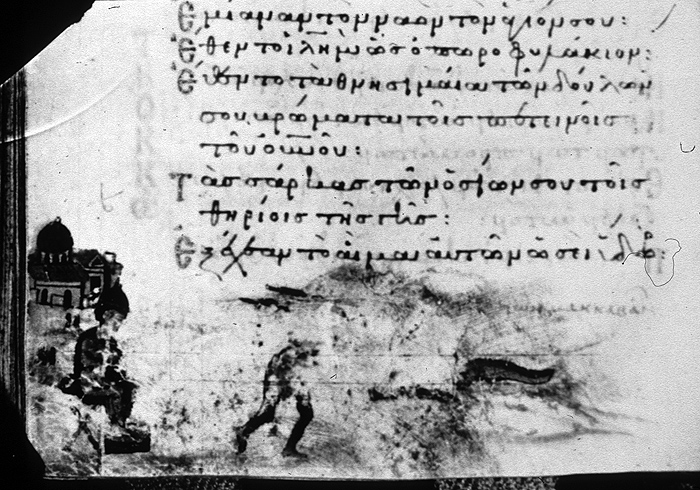 Ἐμίαναν τὸν ναὸν τὸν ἅγιόν σου:
Ἔθεντο ἰλημ ὡς ὀπωροφυλάκιον:
Ἔθεντο τὰ θνησιμαῖα τῶν δούλων
σου βρώματα τοῖς πετεινοῖς
τοῦ οὐνοῦ:
Τὰς σάρκας τῶν ὁσίων σου τοῖς
θηρίοις τῆς γῆς:
Ἐξέχεαν τὸ αἷμα αὐτῶν ὡσεὶ ὕδωρ: